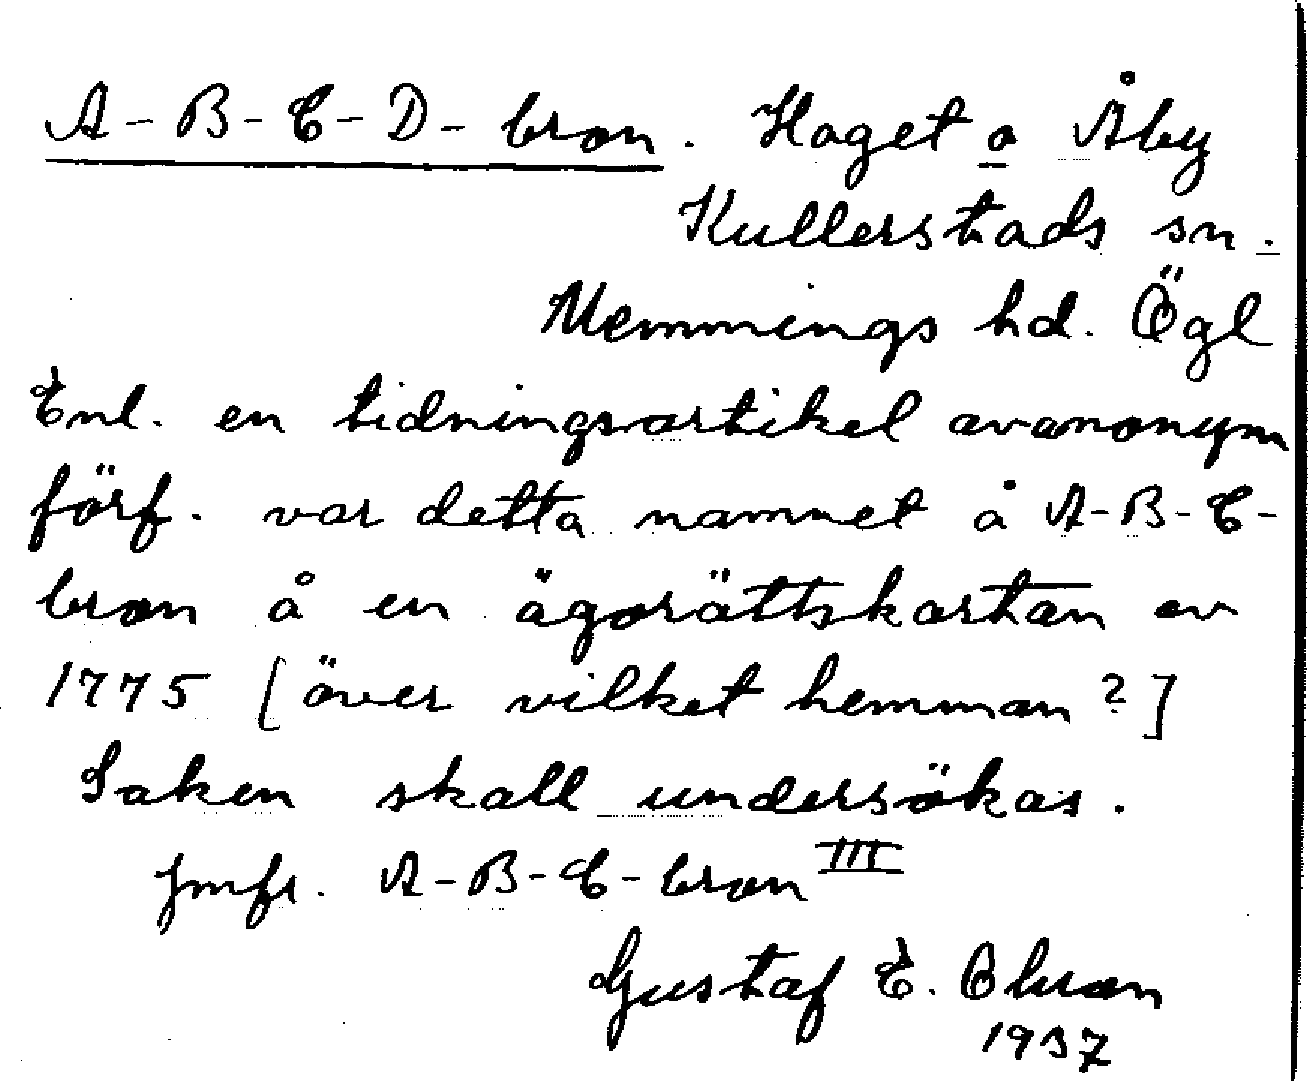 A-B-C-D-bron. Haget o Åby
Kullerstads sn.
Memmings hd. Ögl
Enl. en tidningsartikel av anonym
förf. var detta namnet å A-B-C-
bron å en ägorättskartan av
1775 [över vilket hemman?]
Saken skall undersökas.
Jmfr. A-B-C-bron III
Gustaf E.
1937